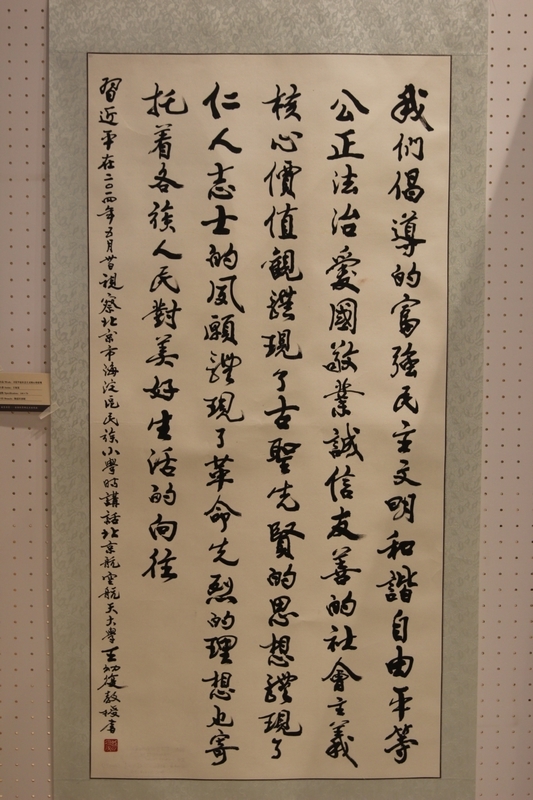 我們倡導的富強民主文明和諧自由平等
公正法治愛國敬業誠信友善的社會主義
核心價值觀體現了古聖先賢的思想體現了
仁人志士的夙願體現了革命先烈的理想也寄
托着各族人民對美好生活的向往
習近平在二〇一四年五月卅日視察北京市海淀区民族小學时講話北京航空航天大學王教授書